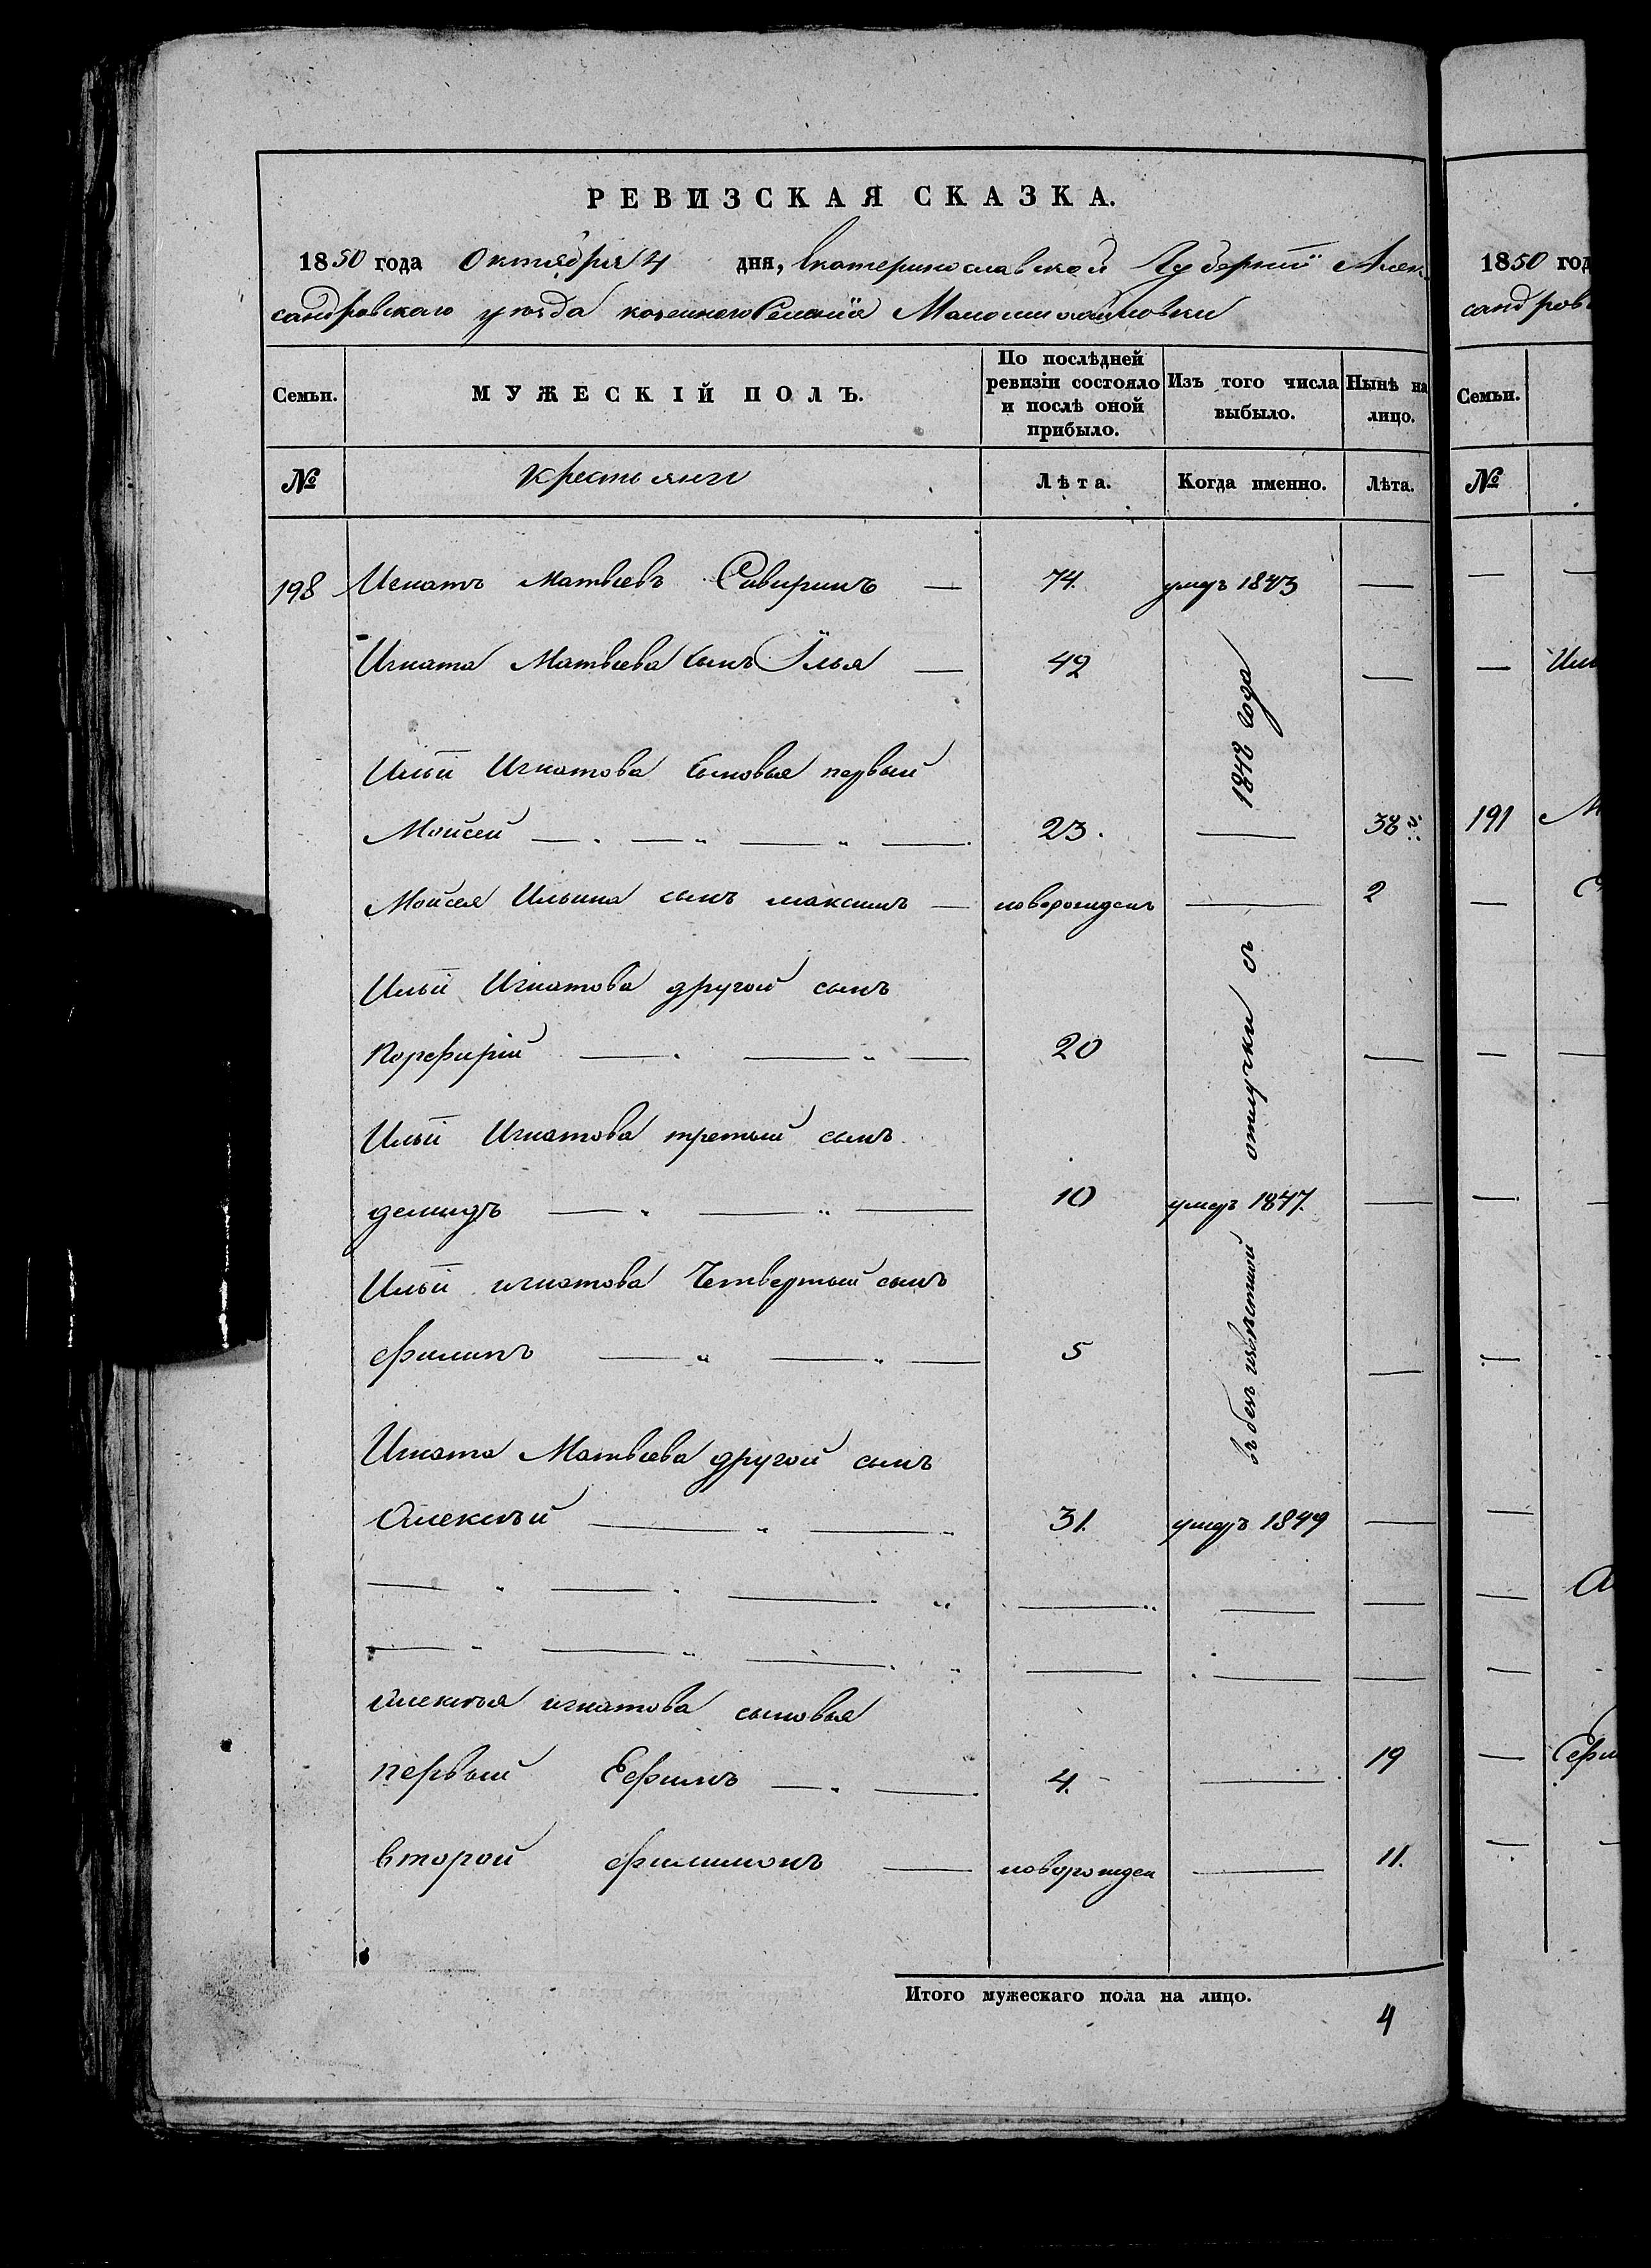 РЕВИЗСКАЯ СКАЗКА.
1850 года Октября 4 дня, Екатеринославской Губернїи Алек
сандровскаго уѣзда казеннаго Селенїя Маломихайловки
Семьи. МУЖЕСКІЙ ПОЛЪ. По послѣдней ревизіи состояло и послѣ оной прибыло. Изъ того числа выбыло. Нынѣ на лицо.
№ Крестьяне Лѣта. Когда именно. Лѣта.
198 Игнатъ Матвѣевъ 74. умеръ 1843
Игната Матвѣева сынъ Илья 42
Ильи Игнатова сыновья первый
Мойсей 23. 38
Мойсея Ильина сынъ максимъ новорожденъ 2
Ильи Игнатова другой сынъ
Порфирій 20
Ильи Игнатова третьий сынъ
демидъ 10 умеръ 1847.
Ильи игнатова Четвертый сынъ
филипъ 5
въ безъизвестной отлучки съ 1848 года
Игната Матвѣева другой сынъ
Алексѣй 31. умеръ 1849
алексѣя игнатова сыновья
первый Ефимъ 4. 19
второй филимонъ новорожден 11.
Итого мужескаго пола на лицо.
4
1850 год
сандров
Семьи.
№
191